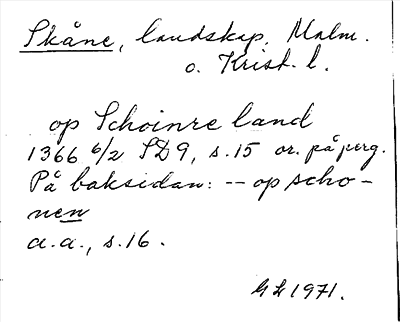 Skåne, landskap. Malm.
o. Krist. l.
op Schoinre land
1366 6/2 SD9, s.15 or. på perg.
På baksidan: -- op scho-
nen
a.a., s.16.
GL 1971.